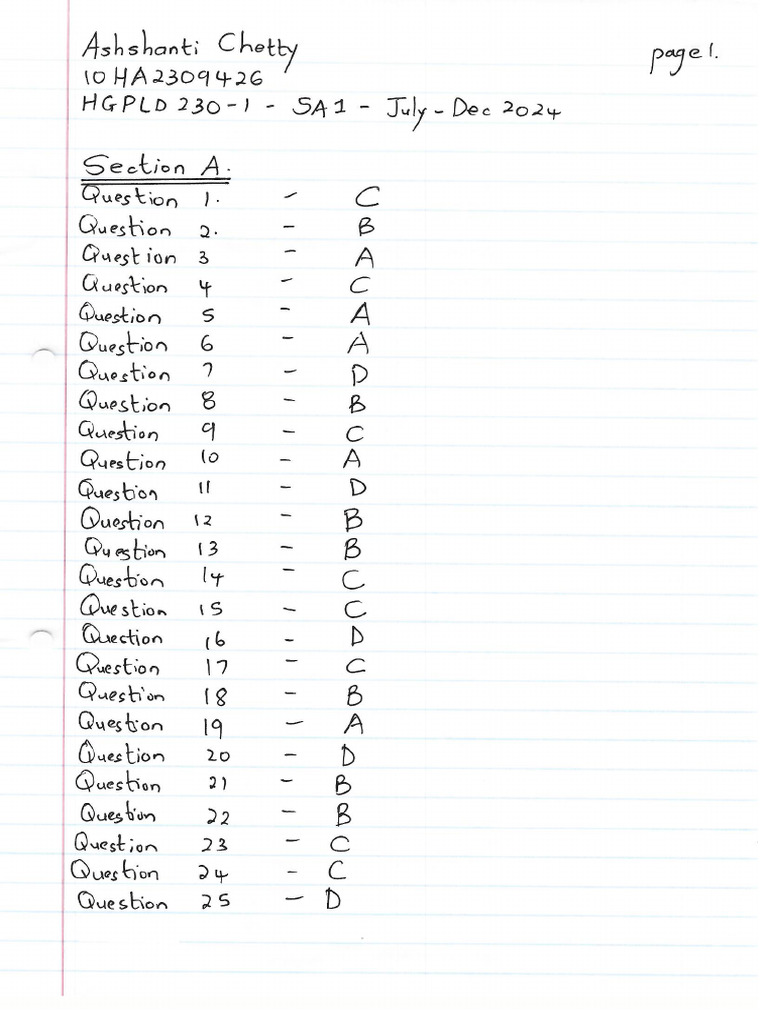 Ashshanti Chetty
page 1.
10HA2309426
HGPLD 230-1 - SA1 - July - Dec 2024
Section A.
Question 1. - C
Question 2. - B
Question 3 - A
Question 4 - C
Question 5 - A
Question 6 - A
Question 7 - D
Question 8 - B
Question 9 - C
Question 10 - A
Question 11 - D
Question 12 - B
Question 13 - B
Question 14 - C
Question 15 - C
Question 16 - D
Question 17 - C
Question 18 - B
Question 19 - A
Question 20 - D
Question 21 - B
Question 22 - B
Question 23 - C
Question 24 - C
Question 25 - D